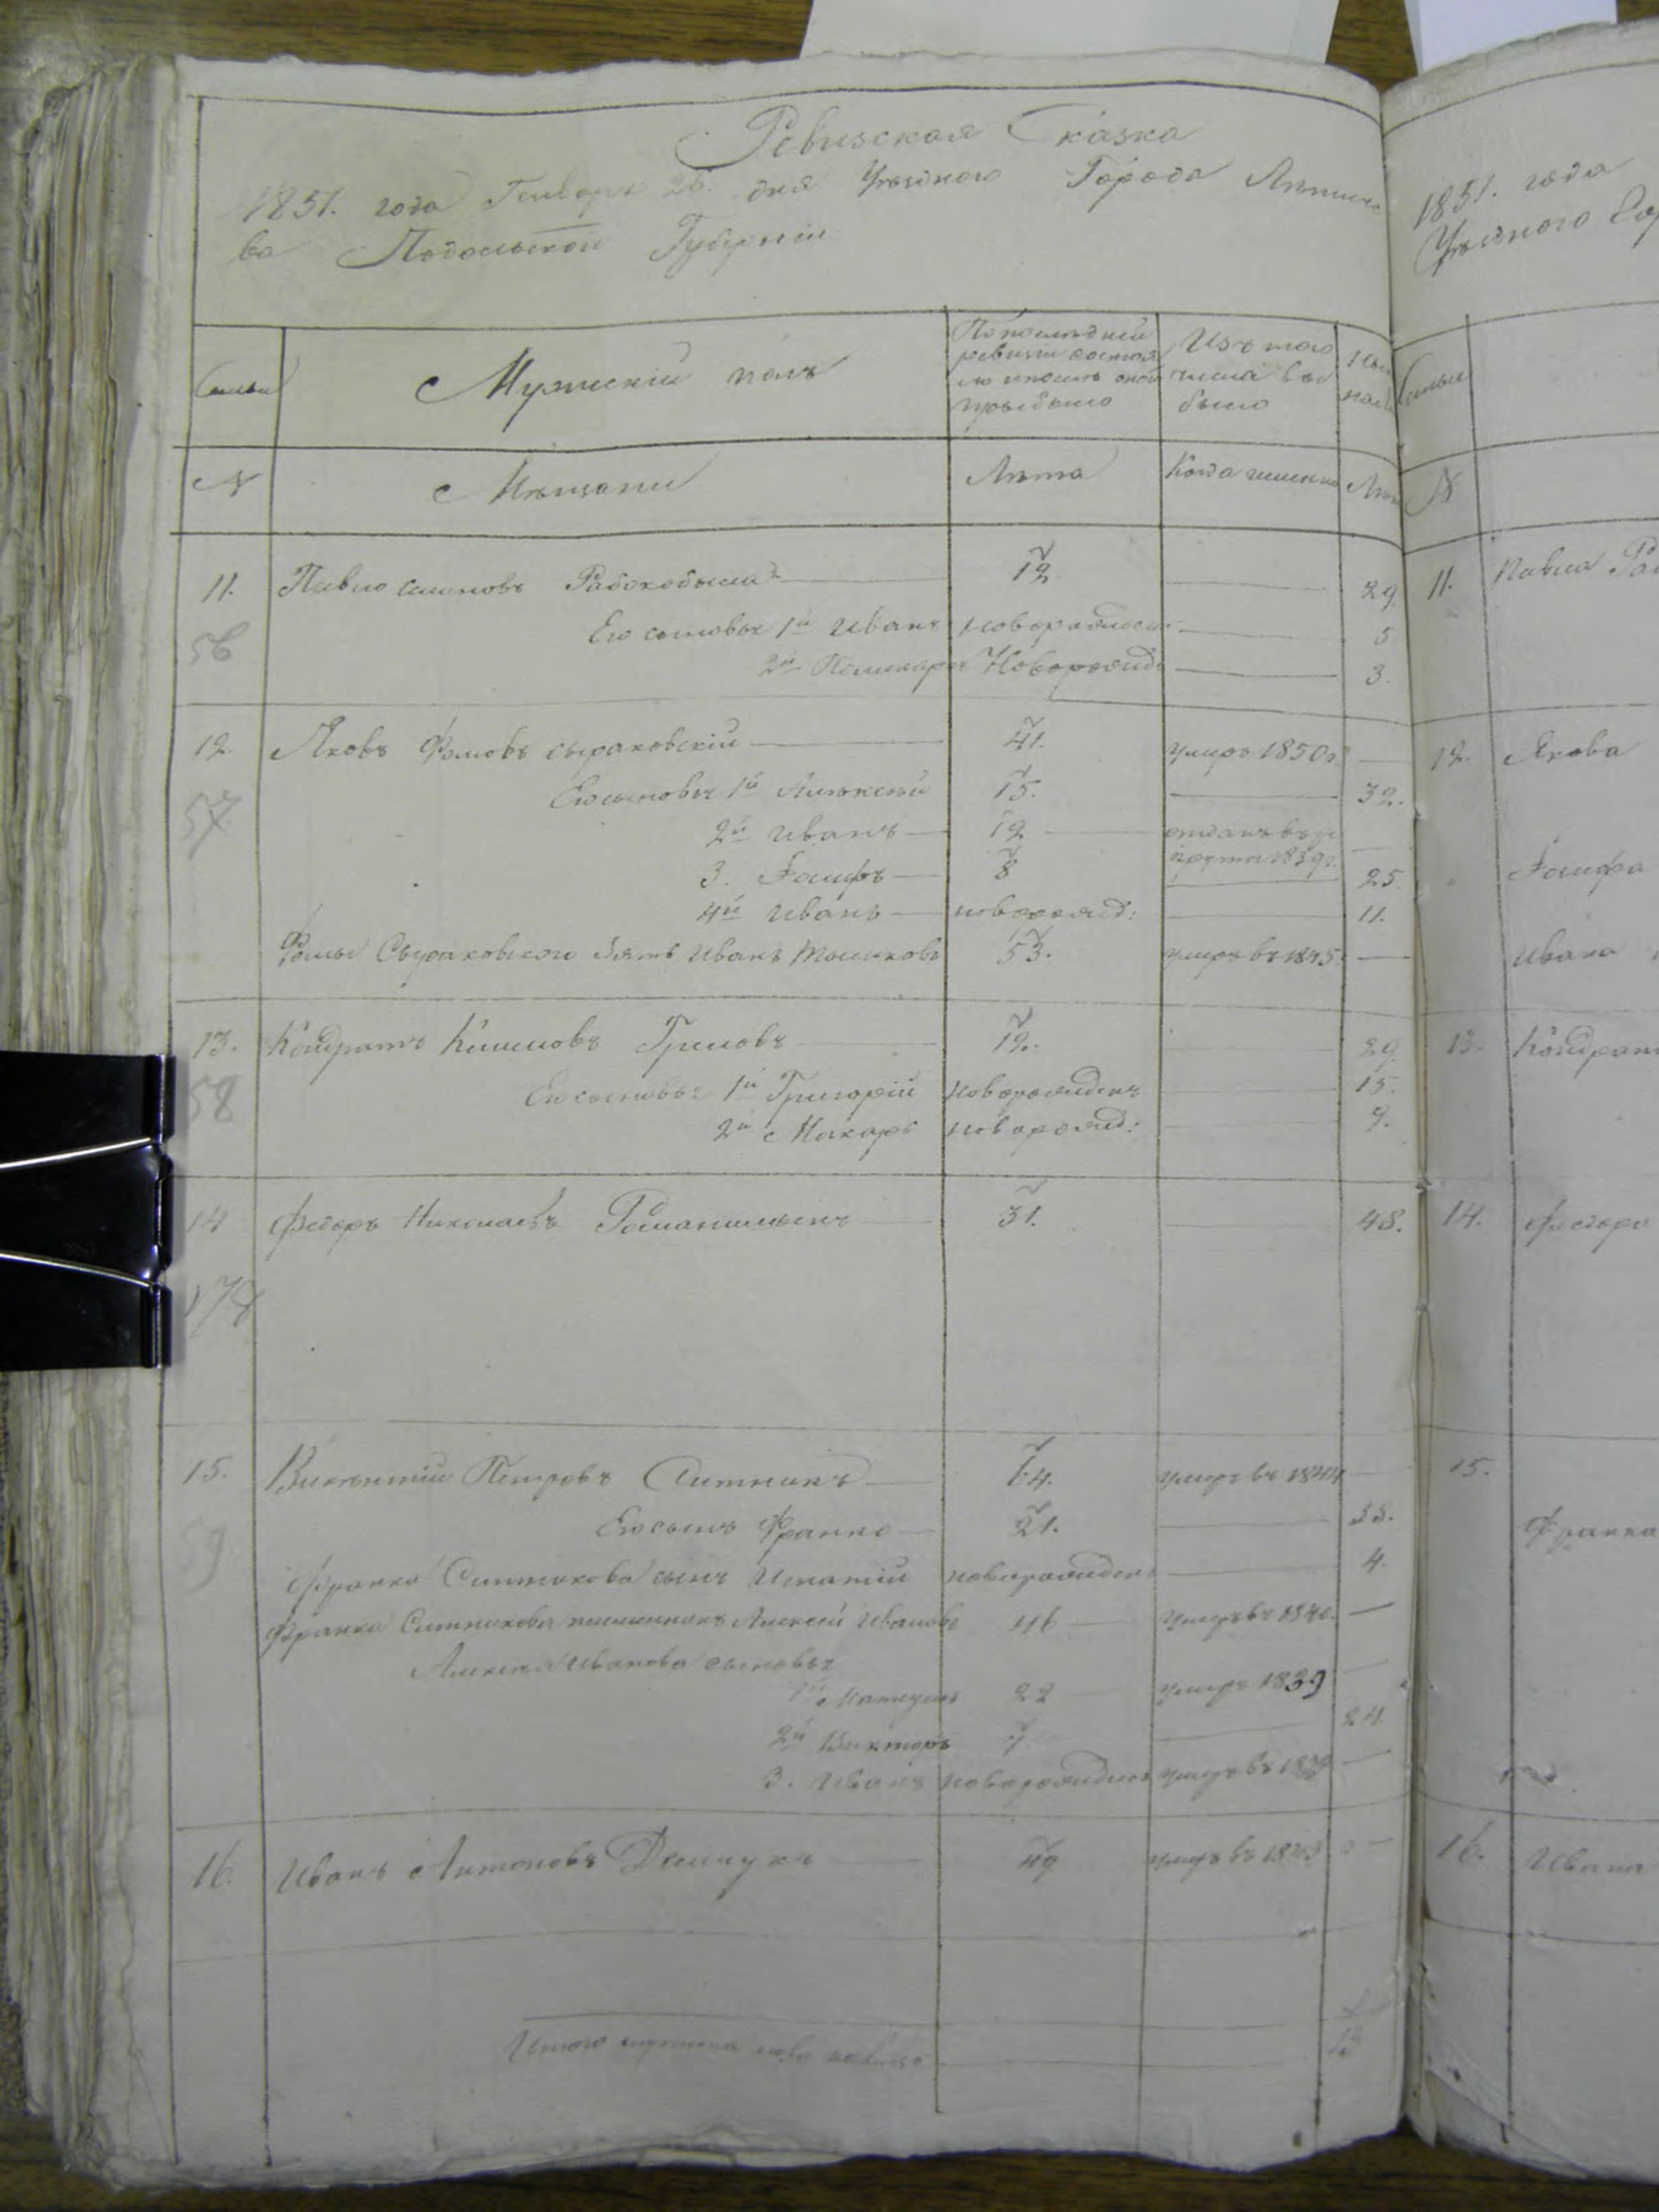 Ревизская Сказка
1851. года Генваря 26. дня Уѣзднаго Города Летиче
ва Подольской Губерніи
Семьи
Мужескій полъ
По послѣдней ревизіи состояло и послѣ оной прыбыло
Изъ того числа выбыло
Ны
налі
№ Мѣщани Лѣта Когда именно Лѣта
11. Павло Семеновъ Рабокобыла 12 29.
Его сыновья 1й Иванъ новорожден: 5
56
2й Поликарпъ Новорожд: 3.
12. Яковъ Фомовъ Сыраковскій 41. умиръ 1850г.
Его сыновья 1й Алѣксѣй 15. 32.
57
2й Иванъ 12 отданъ въ рекруты 1839г.
3. Іосифъ 8 25.
4й Иванъ новорожд: 11.
Фомы Сыраковского Зять Иванъ 53. умиръ въ 1845.
13. Кондратъ Климовъ Гримовъ 12. 29.
Его сыновья 1й Григорій новорожденъ 15.
58
2й Макаръ новорожд: 9.
14 Федоръ Николаевъ 31. 48.
178
15. Викентій Петровъ Ситникъ 64. умиръ въ 1844
Его сынъ Франко 21. 35.
59
Франка Ситникова сынъ Игнатій новорожденъ 4.
Франка Ситникова племенникъ Алексей Ивановъ 46 Умиръ въ 1840.
Алексея Иванова сыновья
1й 22 умиръ 1839
2й Викторъ 7. 24.
3. Иванъ новорожденъ умиръ въ
16. Иванъ Антоновъ Демчукъ 49 умиръ въ
Итого мужеска пола налицо 13
1851. года
Уѣзднаго Гор
Семьи
№
11. Павла Раб
12. Якова
Іосифа
Ивана
13. Кондрат
14. Федора
15.
Франка
16. Ивана